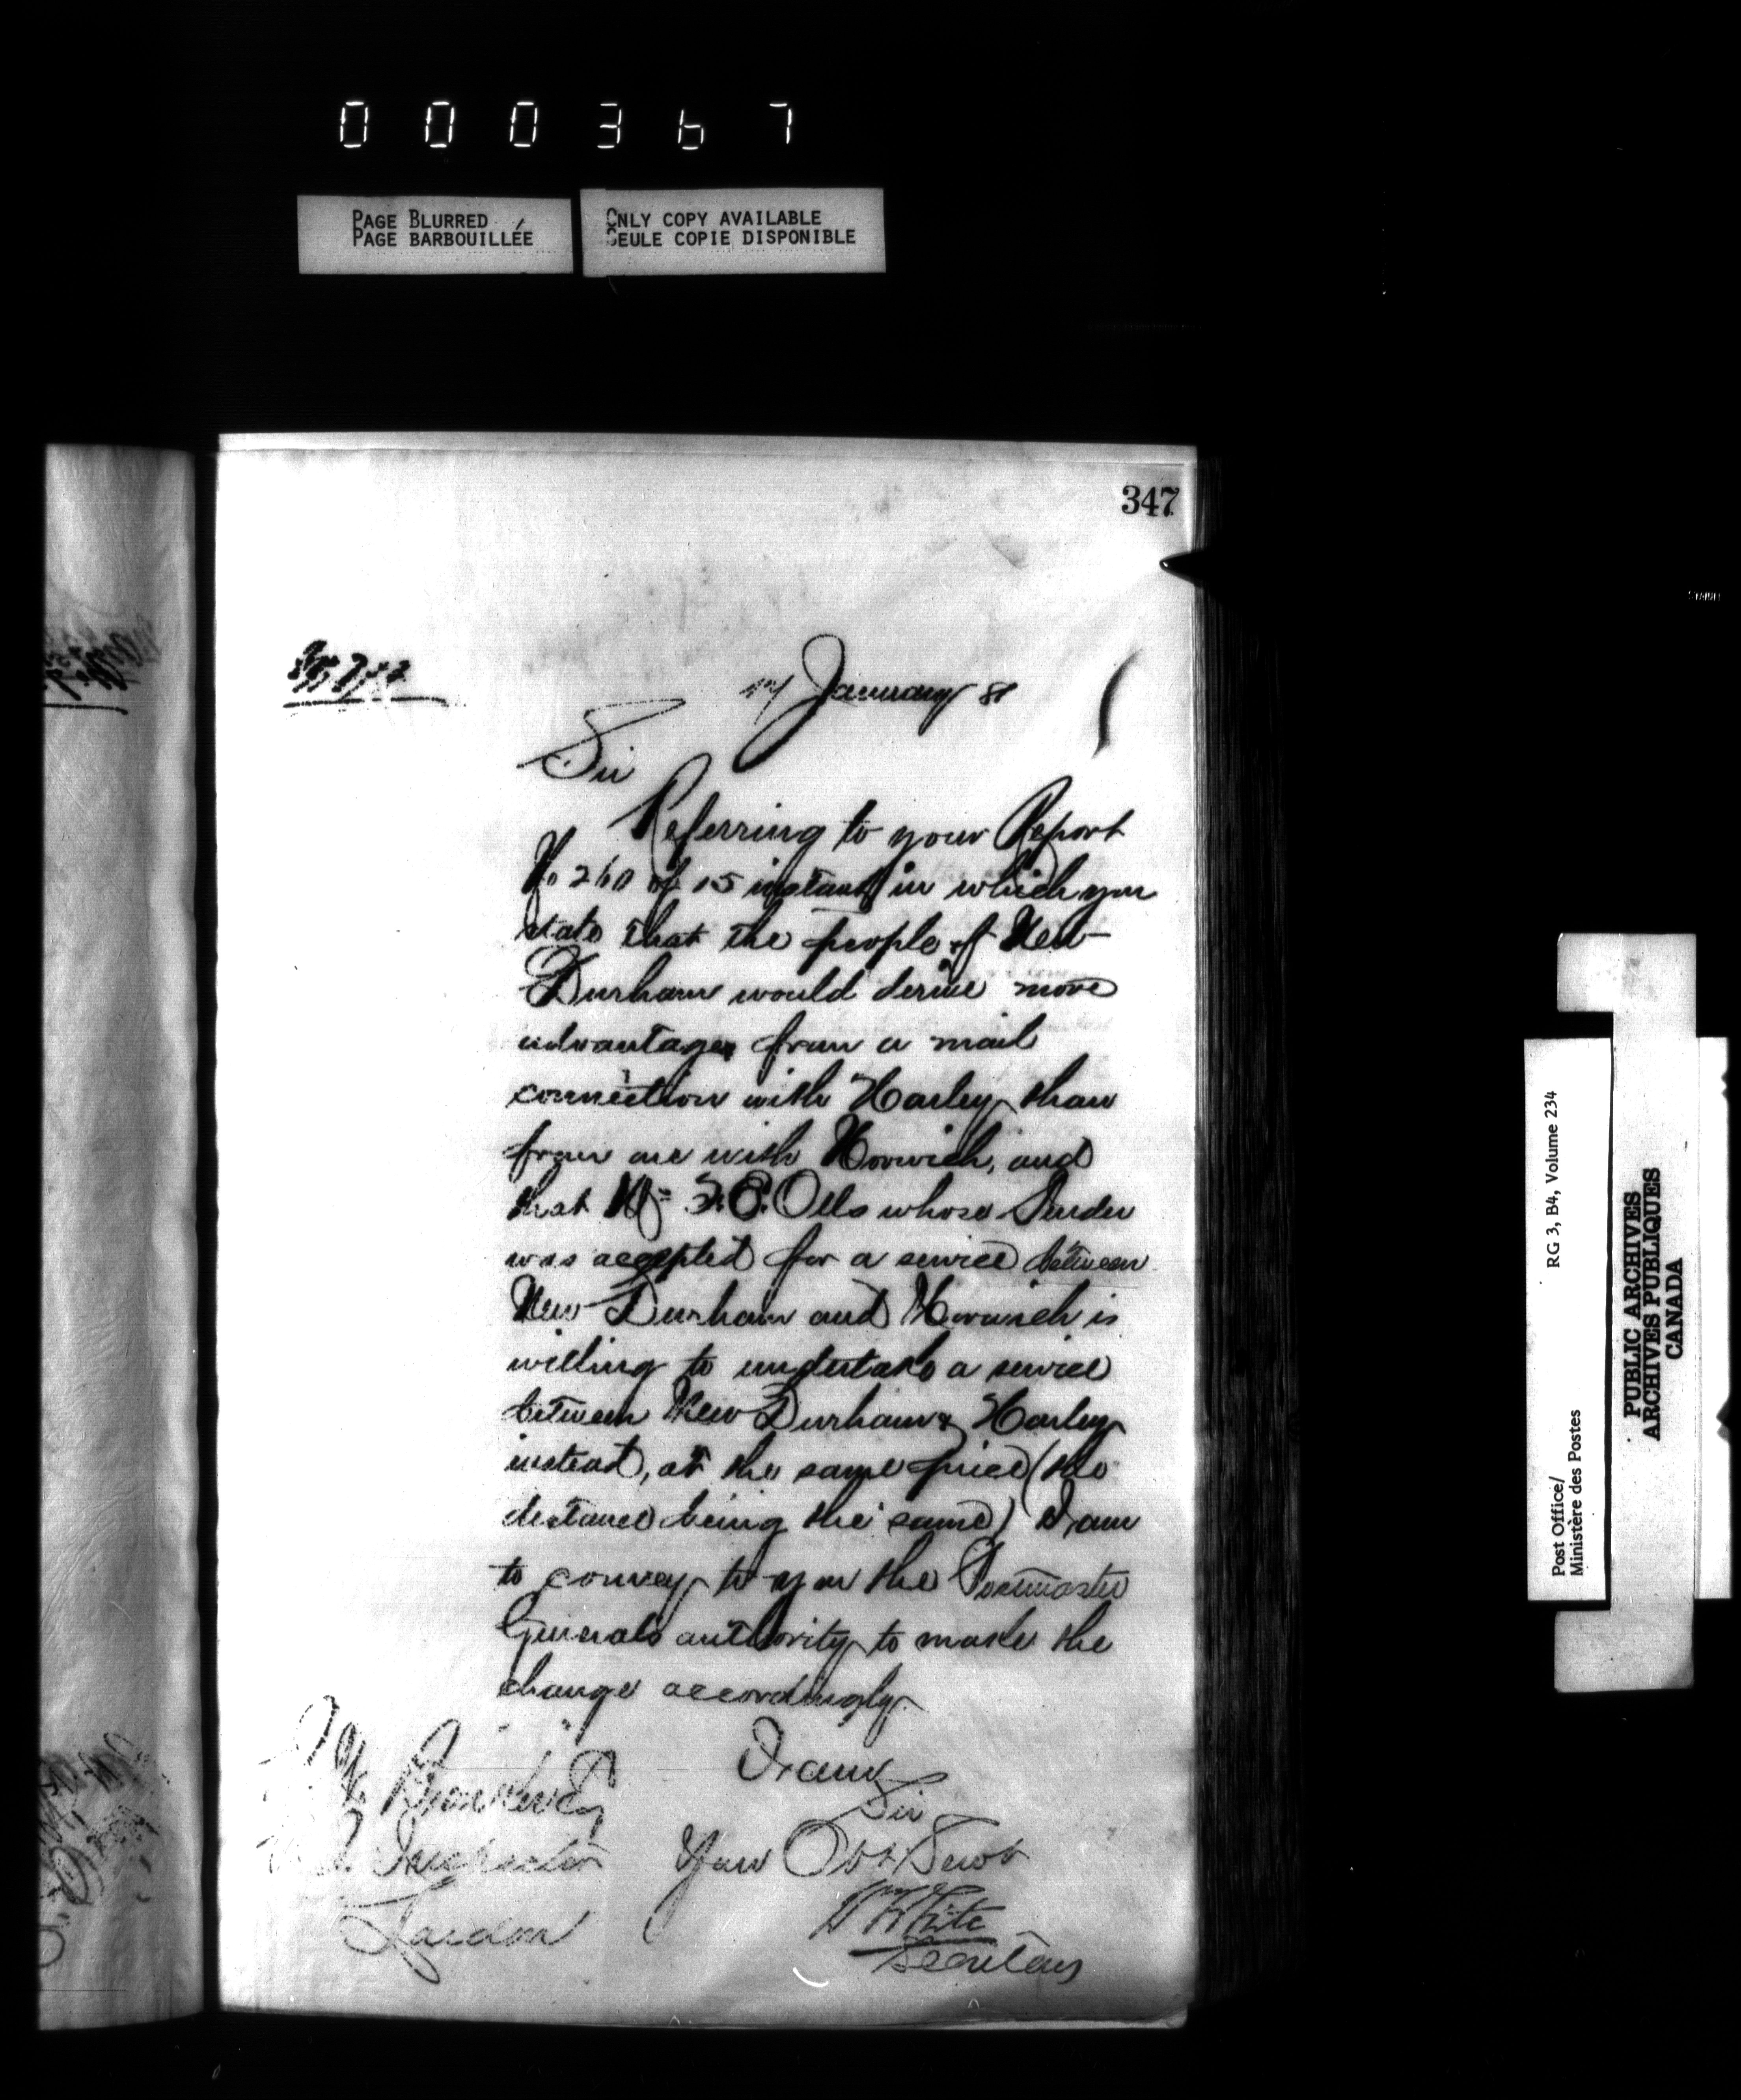 000367
PAGE BLURRED
PAGE BARBOUILLÉE
ONLY COPY AVAILABLE
SEULE COPIE DISPONIBLE
347
January 81
Sir
Referring to your Report
No 260 of 15 instant in which you
state that the people of New
Durham would derive more
advantages from a mail
connection with Harley than
from one with Norwich, and
that Mr Oels whose Tender
was accepted for a service between
New Durham and Norwich is
willing to undertake a service
between New Durham & Harley
instead, at the same price (the
distance being the same) I am
to convey to you the Postmaster
Generals authority to make the
change accordingly.
I am
Sir
Your Obt Servt
W White
Secretary
Inspector
London
Post Office/
Ministère des Postes
RG 3, B4, Volume 234
PUBLIC ARCHIVES
ARCHIVES PUBLIQUES
CANADA